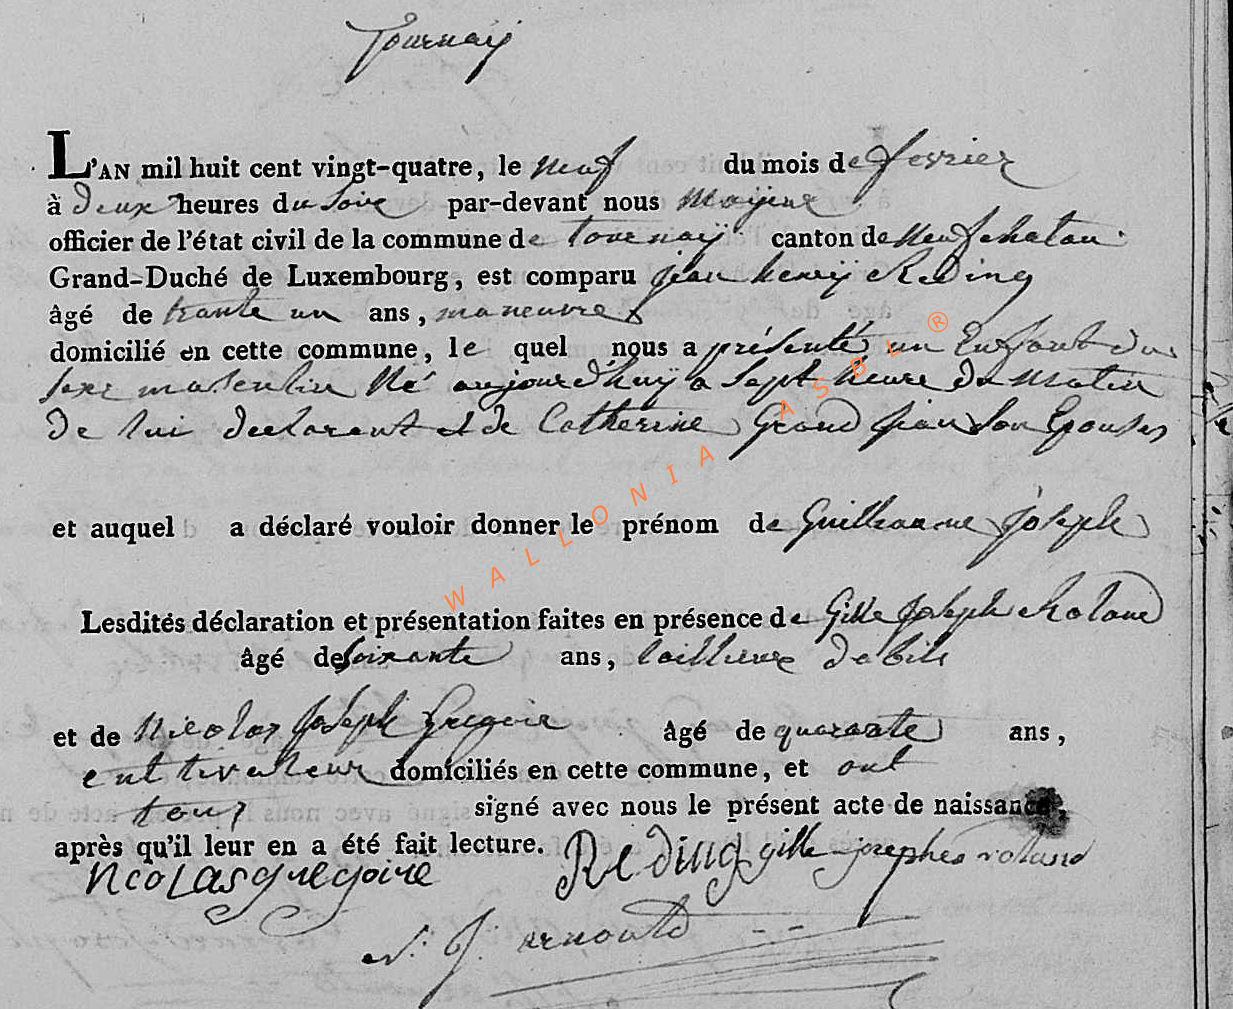 Tournaÿ
L'AN mil huit cent vingt-quatre, le neuf du mois de fevrier
à deux heures du soire par-devant nous mayeur
officier de l'état civil de la commune de tournaÿ canton de Neufchatau
Grand-Duché de Luxembourg, est comparu jean henrÿ Reding
âgé de trante un ans, maneuvre
domicilié en cette commune, le quel nous a présenté un Enfant du
sexe masculin Né aujourd'huÿ a sept heure du matin
de lui declarant et de Catherine Grand jean son Epouse
et auquel a déclaré vouloir donner le prénom de Guilleaume joseph
Lesdites déclaration et présentation faites en présence de Gille joseph Roland
âgé de soixante ans, taillieure dabits
et de Nicolas joseph Gregoire âgé de quarante ans,
cultivateur domiciliés en cette commune, et ont
tous signé avec nous le présent acte de naissance,
après qu'il leur en a été fait lecture. Reding gille josephes roland
Ncolas gregoire
N. J. arnould
WALLONIA ASBL ®